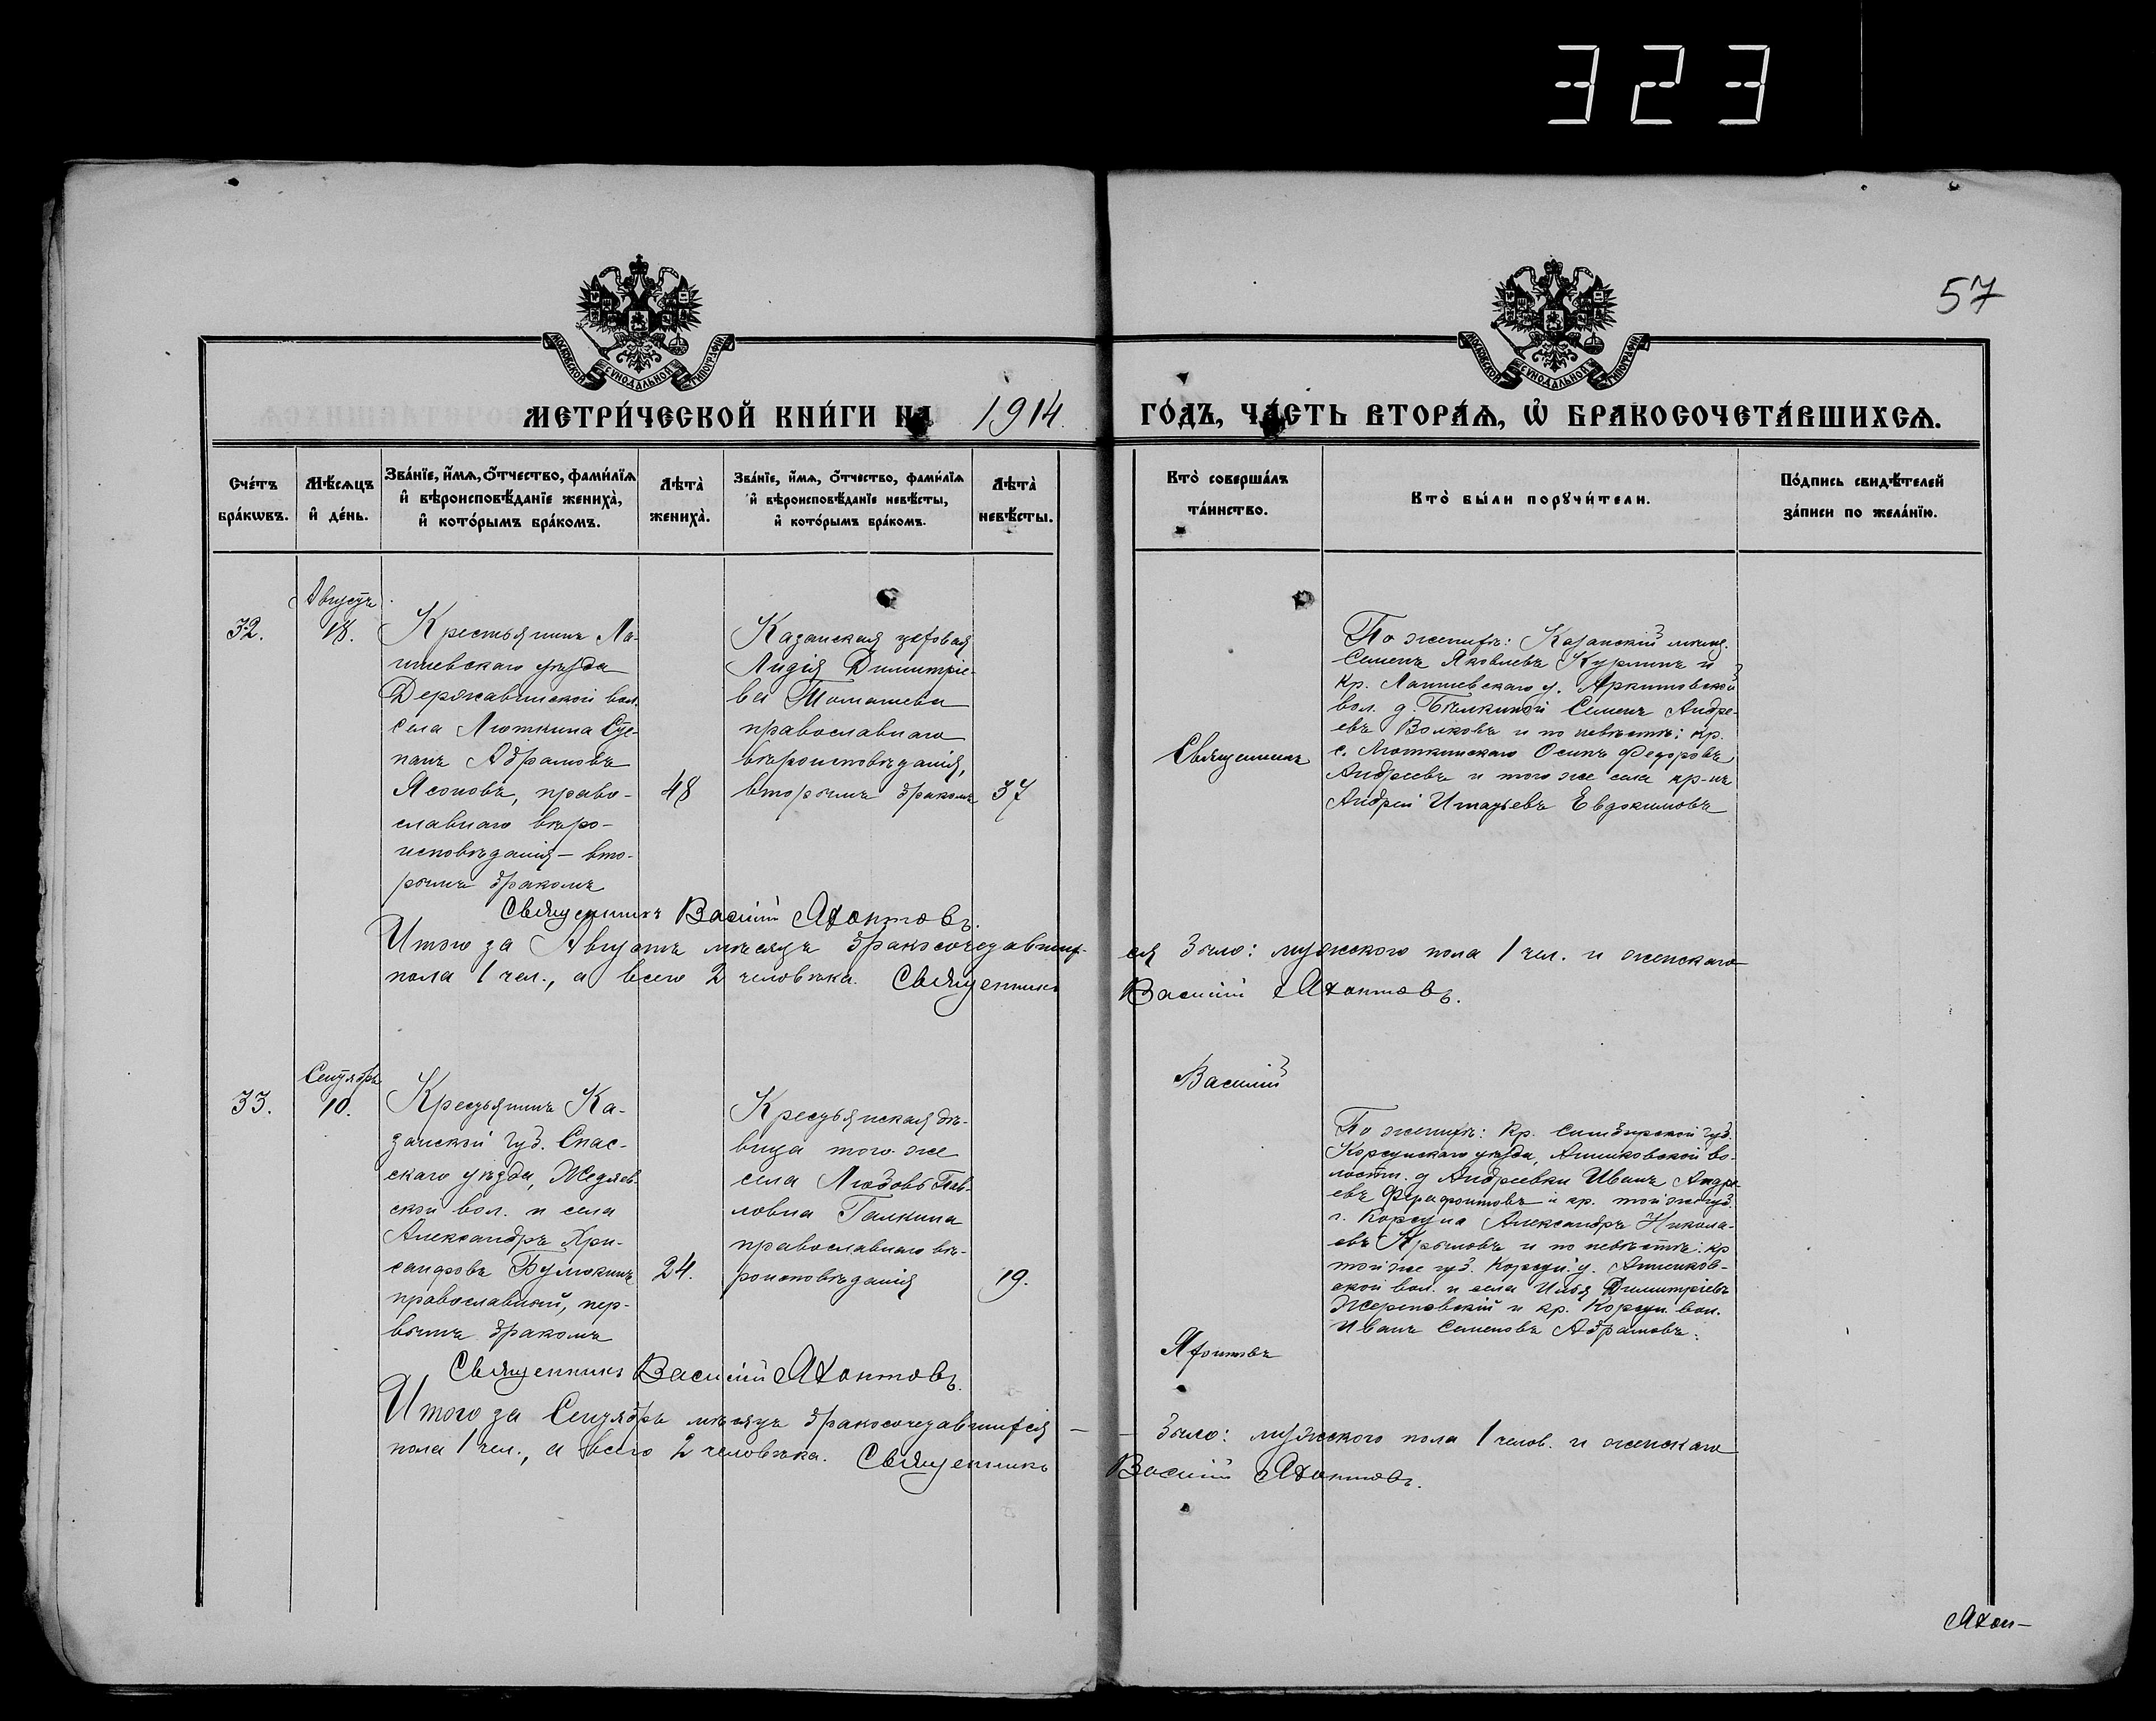 323
57
МОСКОВСКОЙ СѴНОДАЛЬНОЙ ТИПОГРАФІИ
МОСКОВСКОЙ СѴНОДАЛЬНОЙ ТИПОГРАФІИ
МЕТРИ́ЧЕСКОЙ КНИ́ГИ НА 1914 ГО́ДЪ, ЧА́СТЬ ВТОРА́Ѧ, Ѡ҆ БРАКОСОЧЕТА́ВШИХСѦ.
Сче́тъ бра́кѡвъ.
Мѣ́сѧцъ и҆ де́нь.
Зва́нїе, и҆́мѧ, ѻ҆́тчество, фами́лїѧ
и҆ вѣроисповѣ́данїе жениха̀,
и҆ кото́рымъ бра́комъ.
Лѣ́та̀ жениха̀.
Зва́нїе, и҆́мѧ, ѻ҆́тчество, фами́лїѧ
и҆ вѣроисповѣ́данїе невѣ́сты,
и҆ кото́рымъ бра́комъ.
Лѣ́та̀ невѣ́сты.
Кто̀ соверша́лъ
та́инство.
Кто̀ бы́ли порꙋчи́тели.
По́дпись свидѣ́телей
за́писи по жела́нїю.
32.
Августъ
18.
Крестьянинъ Ла-
ишевскаго уѣзда
Державинской вол.
села Люткина Сте-
панъ Абрамовъ
Ясоновъ, право-
славнаго вѣро-
исповѣданія – вто-
рымъ бракомъ
48
Казанская цеховая
Лидія Димитріе-
ва Томашева
православнаго
вѣроисповѣданія,
вторымъ бракомъ
37
Священникъ
По женихѣ: Казанскій мѣщ.
Семенъ Яковлевъ Курминъ и
кр. Лаишевскаго у.
вол. д. Семенъ Андре-
евъ Волковъ и по невѣстѣ: кр.
с. Осипъ Федоровъ
Андреевъ и того же села кр-нъ
Андрей Игнатьевъ Евдокимовъ
Священникъ Василій Яхонтовъ.
Итого за Августъ мѣсяцъ бракосочетавших-
ся было: мужского пола 1 чел. и женскаго
пола 1 чел., а всего 2 человѣка. Священникъ
Василій Яхонтовъ.
33.
Сентябрь
10.
Крестьянинъ Ка-
занской губ. Спас-
скаго уѣзда, Жедяев-
ской вол. и села
Александръ Хри-
санфовъ Булюкинъ
православный, пер-
вымъ бракомъ
24.
Крестьянская дѣ-
вица того же
села Любовь Пав-
ловна Галкина
православнаго вѣ-
роисповѣданія
19.
Василій
Яхонтовъ
По женихѣ: Кр. Симбирской губ.
Корсунскаго уѣзда, Анненковской во-
лости. д Андреевки Иванъ Андре-
евъ Ферафонтовъ и кр. той же губ.
г. Корсуна Александръ Никола-
евъ Крыловъ и по невѣстѣ: кр
той же губ. Корсун. у. Анненков-
ской вол. и села Илья Димитріевъ
Жереновскій и кр. Корсун. вол.
Иванъ Семеновъ Абрамовъ.
Священникъ Василій Яхонтовъ.
Итого за Сентябрь мѣсяцъ бракосочетавшихся –
– было: мужского пола 1 челов. и женскаго
пола 1 чел., а всего 2 человѣка. Священникъ
Василій Яхонтовъ.
Яхон–